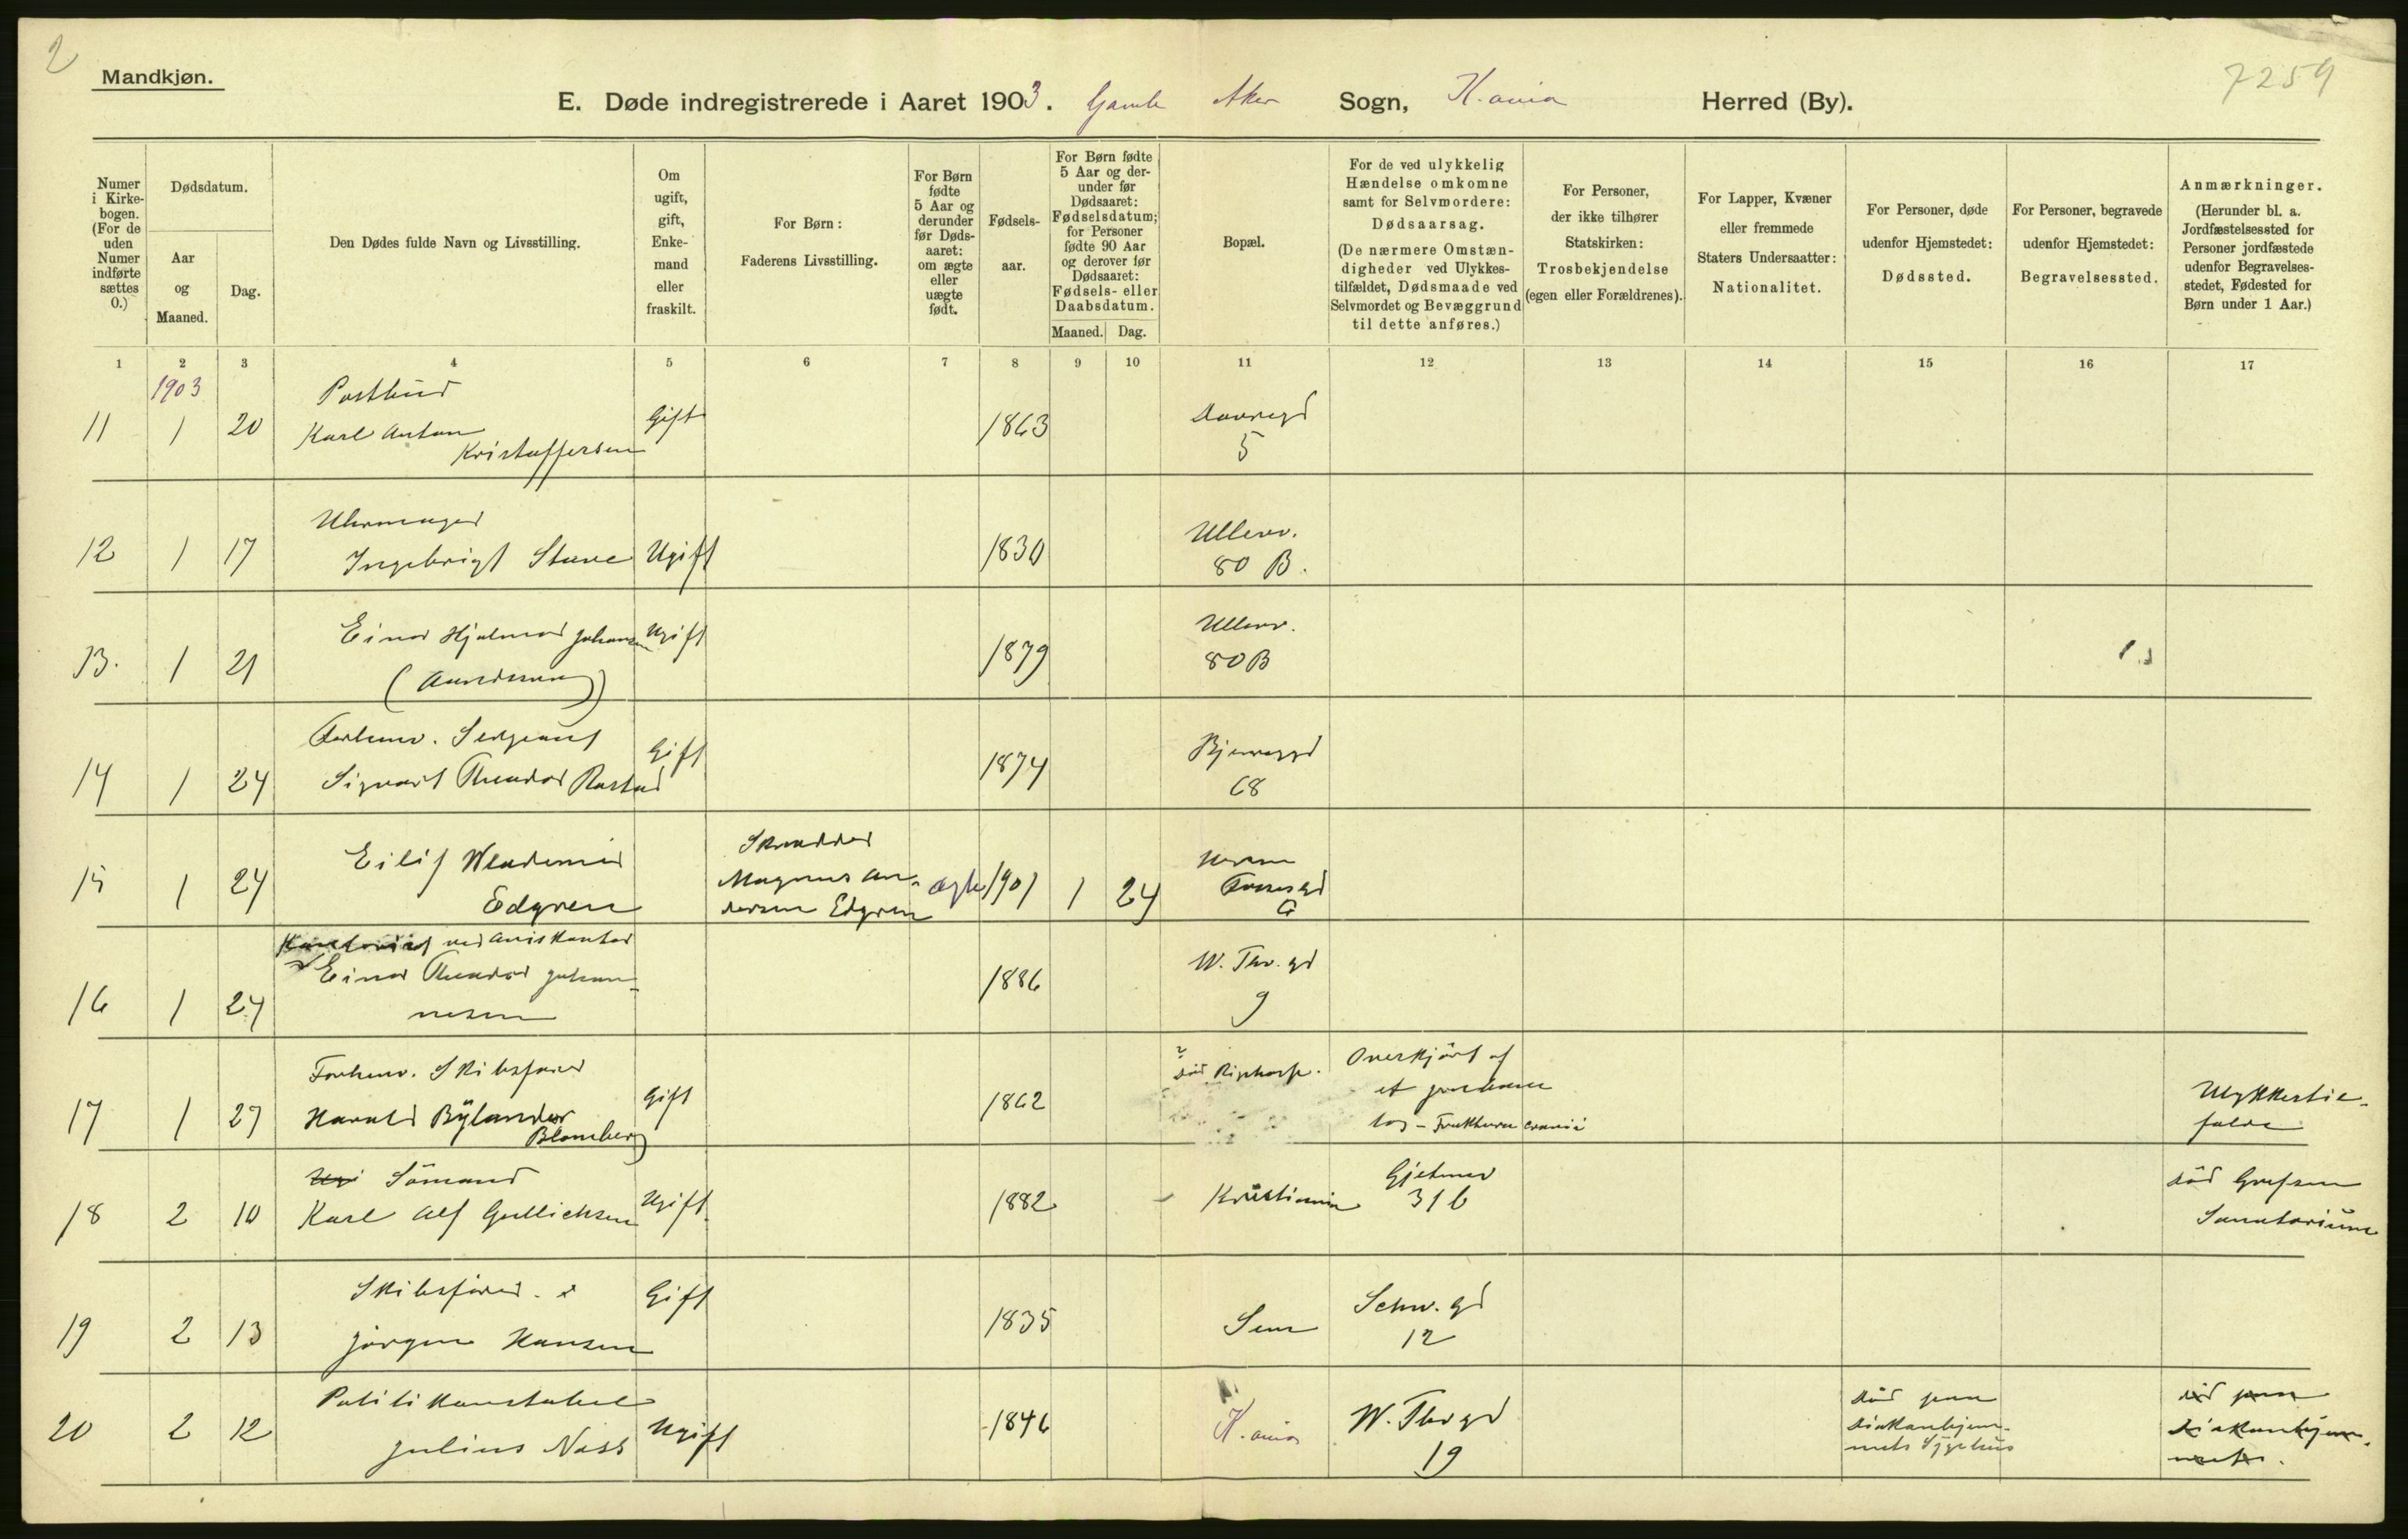 2
7259
Mandkjøn.
E. Døde indregistrerede i Aaret 1903. Gamle Aker Sogn, K.ania Herred (By).
Numer i Kirkebogen. (For de uden Numer indførte sættes 0.)
Dødsdatum.
Aar og Maaned.
Dag.
Den Dødes fulde Navn og Livsstilling.
Om ugift, gift, Enkemand eller fraskilt.
For Børn:
Faderens Livsstilling.
For Børn fødte 5 Aar og derunder før Dødsaaret: om ægte eller uægte født.
Fødselsaar.
For Børn fødte 5 Aar og derunder før Dødsaaret: Fødselsdatum; for Personer fødte 90 Aar og derover før Dødsaaret: Fødsels- eller Daabsdatum.
Maaned. Dag.
Bopæl.
For de ved ulykkelig Hændelse omkomne samt for Selvmordere: Dødsaarsag.
(De nærmere Omstændigheder ved Ulykkestilfældet, Dødsmaade ved Selvmordet og Bevæggrund til dette anføres.)
For Personer, der ikke tilhører Statskirken: Trosbekjendelse (egen eller Forældrenes).
For Lapper, Kvæner eller fremmede Staters Undersaatter: Nationalitet.
For Personer, døde udenfor Hjemstedet: Dødssted.
For Personer, begravede udenfor Hjemstedet: Begravelsessted.
Anmærkninger.
(Herunder bl. a. Jordfæstelsessted for Personer jordfæstede udenfor Begravelsesstedet, Fødested for Børn under 1 Aar.)
1 2 3 4 5 6 7 8 9 10 11 12 13 14 15 16 17
1903
Postbud
11 1 20 Karl Anton Gift 1863 Dovregd
Kristoffersen 5
Uhrmager
12 1 17 Ingebrigt Stave Ugift 1830 Ullevv.
80 B.
13. 1 21 Einar Hjalmar Johansen Ugift 1879 Ullevv.
(Aanerssen) 80 B
Forhenv. Sergeant
14 1 24 Sigvart Theodor Rastad Gift 1874 Bjerregd
68
15 1 24 Eilif Wladimir Skrædder
Edgren Magnus Andersen Edgren ægte 1901 1 24
Fossesgd
ved Aviskontor
16 1 24 Einar Theodor Johannesen 1886 W. Thr. gd
9
Forhenv. Skibsfører
17 1 27 Harald Bÿlander Gift 1862 død Righosp. Overkjørt af
Blomberg et jernbane
tog - Fracktura cranii Ulykkestilfælde
Sömand
18 2 10 Karl Alf Gullichsen Ugift 1882 Kristiania Gjetemv
31 b død Grefsen
Sanatorium
Skibsförer
19 2 13 Jörgen Hansen Gift 1835 Sem Schw. gd
12
Politikonstabel
20 2 12 Julius Næss Ugift 1846 K.ania W. Thr gd
19
död paa
Diakonhjemmets Sygehus
död paa
Diakonhjemmets.